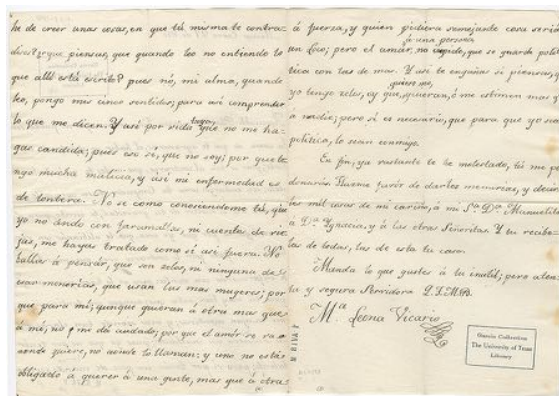 he de creer unas cosas, en que tú misma te contra-
dices? que piensas, que quando leo no entiendo lo
que allí está escrito? pues nó, mi alma, quando
leo, pongo mis cinco sentidos; para asi comprender
lo que me dicen. Y asi por vida tuya que no me ha-
gas candida; pues eso sí, que no soy; por que te-
ngo mucha malicia, y asi mi enfermedad es
de tontera. No se como conociendome tú, que
yo no ando con faramallas, ni cuentos de vie-
jas, me hayas tratado como si asi fuera. No
vallas á pensar, que son zelos, ni ninguna de
esas memorias, que usan las mas mugeres; por
que para mi; aunque quieran á otra mas que
á mi, no me dá cuidado; por que el amor se va a
donde quiere, no adonde lo llaman: y uno no está
obligado á querer á una gente, mas que á otra
á fuerza, y quien pidiera semejante cosa seria
un loco; pero el amar á una persona, no impide, que se guarde polit
tica con las de mas. Y asi te engañas si piensas, q
yo tengo zelos, ó que quiero me quieran, ó me estimen mas q
a nadie; pero si es necesario, que para que yo sea
politica, lo sean conmigo.
En fin, ya vastante te he molestado, tú me pe
donarás. Hazme favor de darles memorias, y decir
les mil cosas de mi cariño, á mi Sª Dª Manuelita
a Dª Ygnacia, y á las otras Señoritas. Y tu recibe
las de todas, las de esta tu casa.
Manda lo que gustes á tu inutil; pero aten
ta y segura Servidora Q.T.M.B.
Mª Leona Vicario
García Collection
The University of Texas
Library